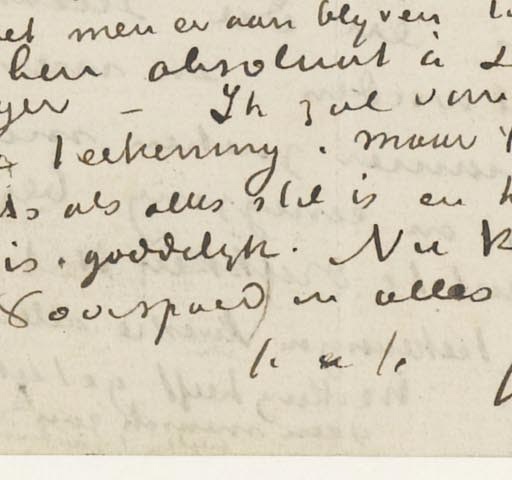 et men er aan blyven
ben absoluut à
— Ik zal van
teekening. maar
is als alles stil is en
is. goddelyk. Nu
Voorspoed in alles
t. à. t.